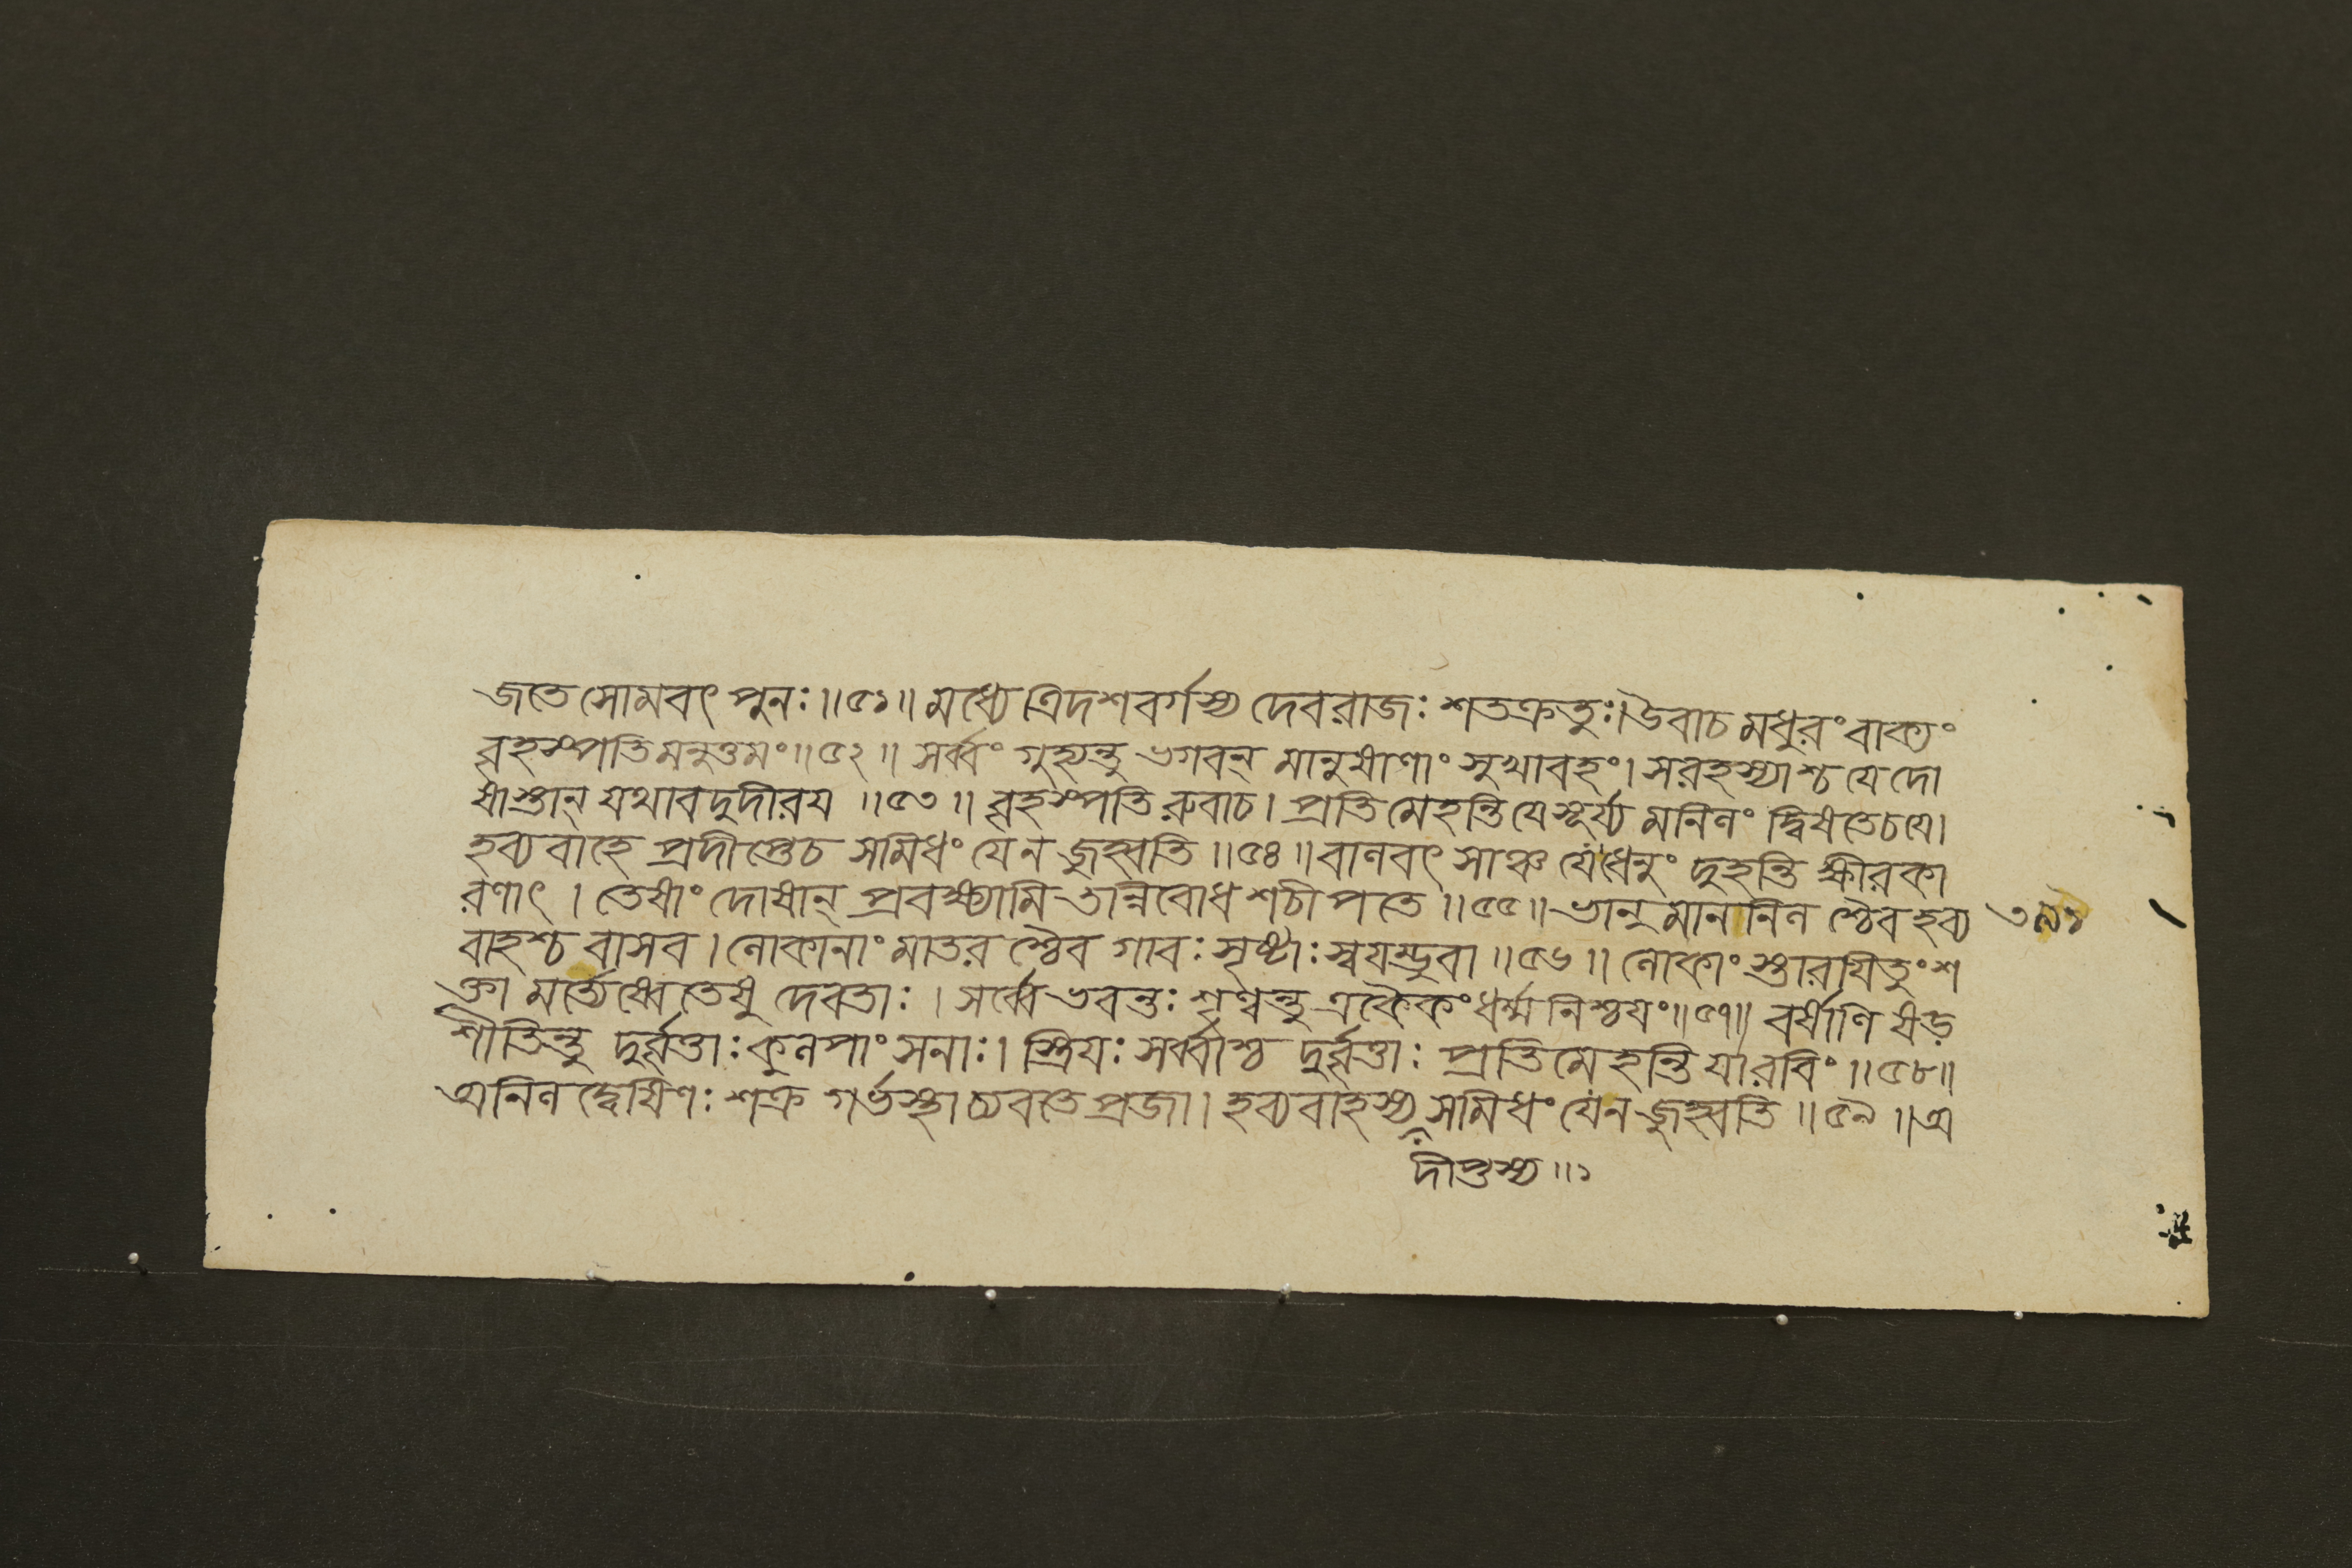 জতে সোমবৎ পুনঃ॥৫১॥ মধ্যে ত্রিদশবর্গস্য দেবরাজঃ শতক্রতুঃ।উবাচ মধুরং বাক্যং
বৃহস্পতিমনুত্তমং॥৫২॥ সর্ব্বং গুহ্যন্তু ভগবন্ মানুষাণাং সুখাবহং। সরহস্যাশ্চ যে দো
ষাস্তান্ যথাবদুদীরয ॥৫৩॥ বৃহস্পতিরুবাচ। প্রতিমেহন্তি যে সূর্য্য মনিলং দ্বিষতেচযে।
হব্যবাহে প্রদীপ্তেচ সমিধং যে ন জুহ্বতি ॥৫৪॥ বালবৎ সাঞ্চ যে ধেনুং দুহন্তি ক্ষীরকা
রণাৎ । তেষাং দোষান্ প্রবক্ষ্যামি তান্নিবোধ শচীপতে ॥৫৫॥ ভানুমাননিল শ্চৈব হব্য ৩৯১
বাহশ্চ বাসব । লোকানাং মাতর শ্চৈব গাবঃ সৃষ্টাঃ স্বযম্ভুবা ॥৫৬॥ লোকাং স্তারযিতুং শ
ক্তা মর্ত্যেষ্বেতেষু দেবতাঃ । সর্ব্বে ভবন্তঃ শৃণ্বন্তু একৈকং ধর্ম্মনিশ্চযং॥৫৭॥ বর্ষাণি ষড়
শীতিন্তু দুর্বৃত্তাঃ কুলপাংসনাঃ। স্ত্রিযঃ সর্ব্বাশ্চ দুর্বৃত্তাঃ প্রতিমেহন্তি যা রবিং ॥৫৮॥
অনিল দ্বেষিণঃ শক্র গর্ভস্থা চ্যবতে প্রজা। হব্যবাহস্য সমিধং যে ন জুহ্বতি ॥৫৯॥ অ
দীপ্তস্য ॥১